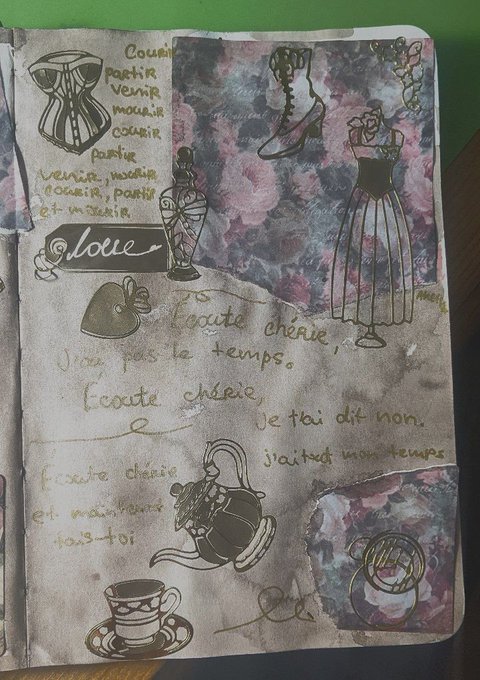 courir
partir
venir
mourir
courir
partir
venir, mourir
courir, partir
et mourir
love
Écoute chérie,
J'ai pas le temps.
Écoute chérie,
Je t'ai dit non.
j'ai tout mon temps
Écoute chérie
et maintenant
tais-toi